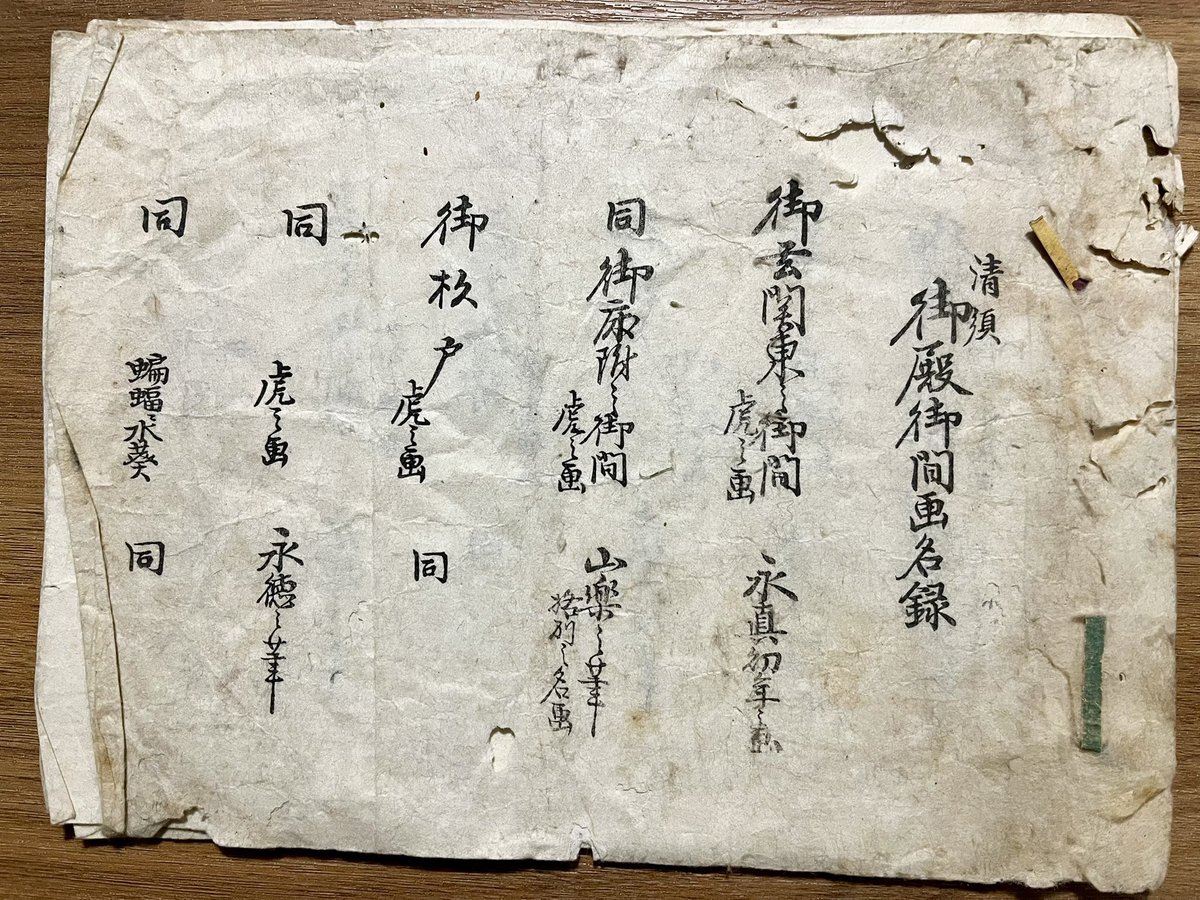 清須
御殿御間画名録
御玄関東之御間
虎之画
永真初年之画
同御床附之御間
虎之画
山楽之筆
格別之名画
御杉戸
虎之画
同
同
虎之画
永徳之筆
同
蝙蝠ニ水葵
同